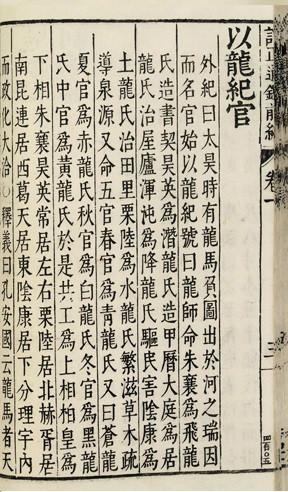 卷一
以龍紀官
外紀曰太昊時有龍馬負圖出於河之瑞因
而名官始以龍紀號曰龍師命朱襄爲飛龍
氏造書契昊英爲潛龍氏造甲曆大庭爲居
龍氏治屋廬渾沌爲降龍氏驅民害陰康爲
土龍氏治田里栗陸爲水龍氏繁滋草木疏
導泉源又命五官春官爲青龍氏又曰蒼龍
夏官爲赤龍氏秋官爲白龍氏冬官爲黑龍
氏中官爲黃龍氏於是共工爲上相柏皇爲
下相朱襄昊英常居左右栗陸居北赫胥居
南昆連居西葛天居東陰康居下分理宇內
而政化大洽○釋義曰孔安國云龍馬者天